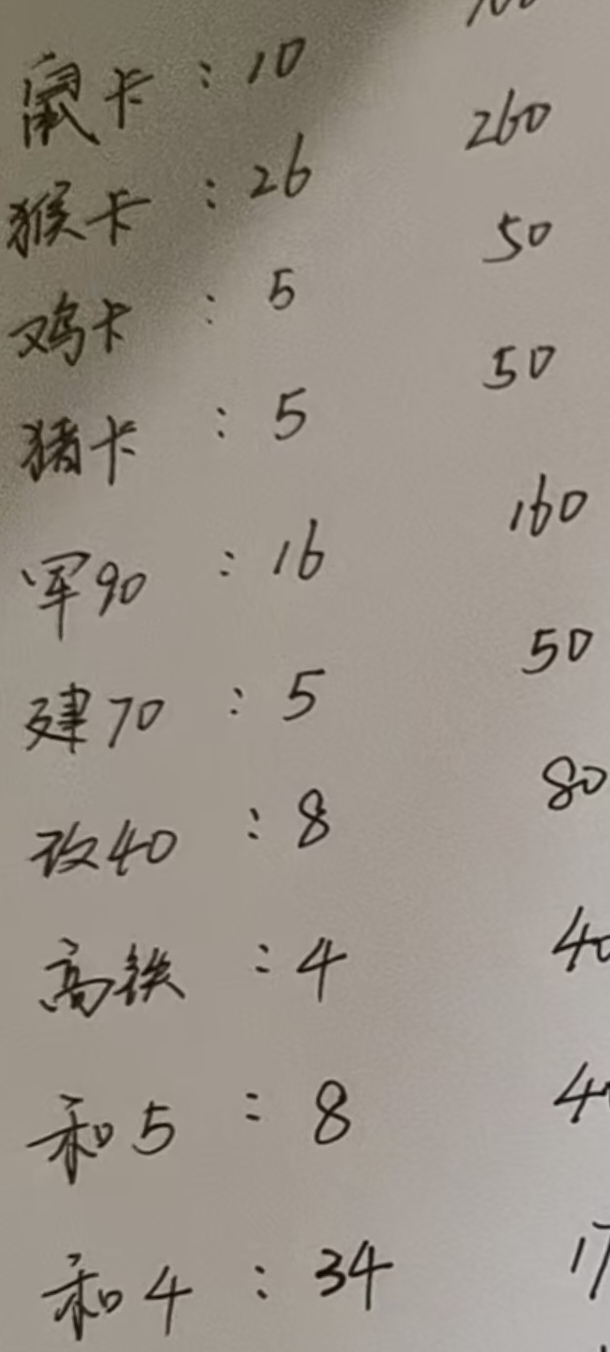 鼠卡：10 100
猴卡：26 260
鸡卡：5 50
猪卡：5 50
军90：16 160
建70：5 50
改40：8 80
高铁：4 40
和5：8
和4：34